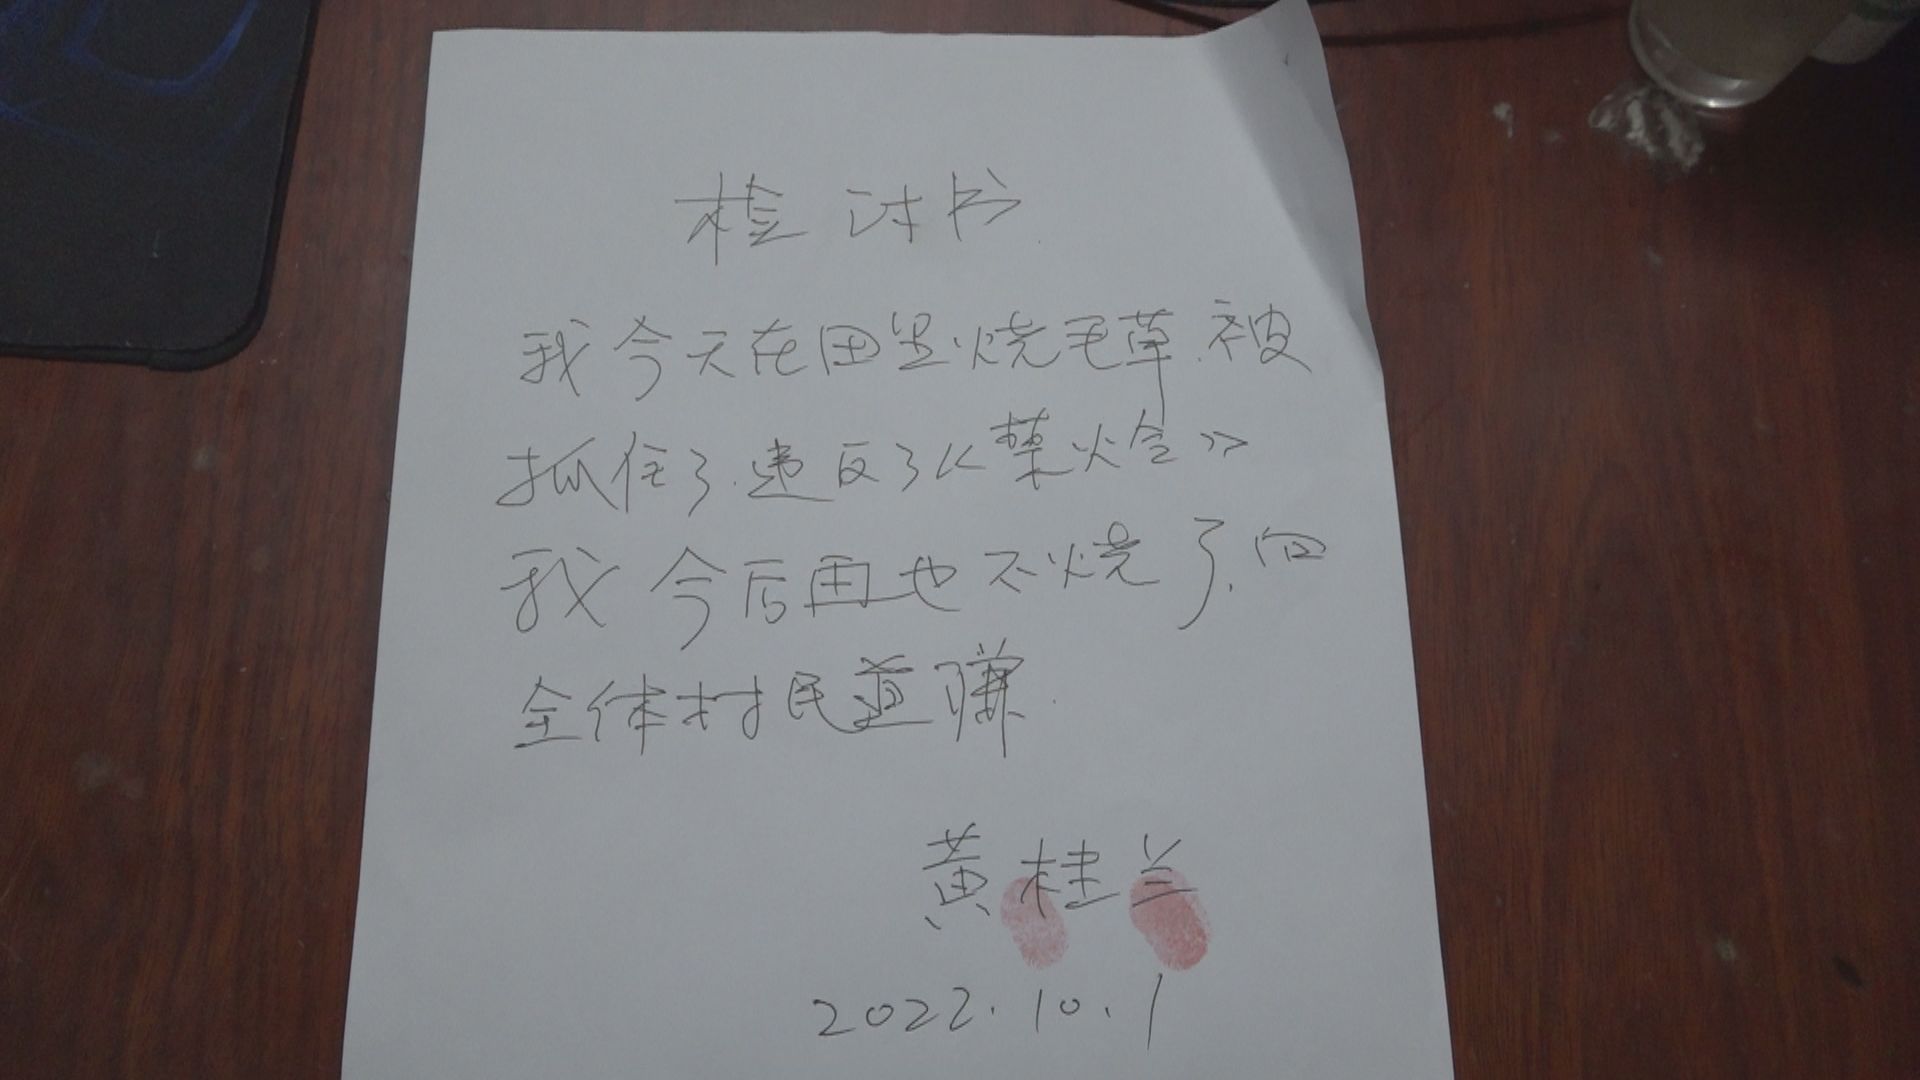 检讨书
我今天在田里烧毛草.被
抓住了.违反了《禁火令》
我今后再也不烧了.向
全体村民道赚.
黄桂兰
2022.10.1